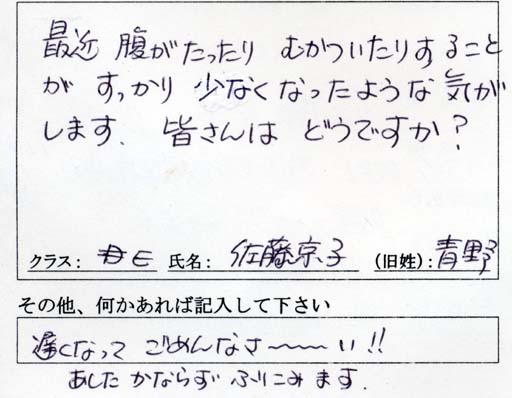 最近 腹がたったり むかついたりすること
が すっかり 少なくなったような気が
します. 皆さんは どうですか?
クラス: E 氏名: 佐藤京子 (旧姓): 青野
その他、何かあれば記入して下さい
遅くなって ごめんなさ〜〜〜い!!
あした かならず ふりこみます.